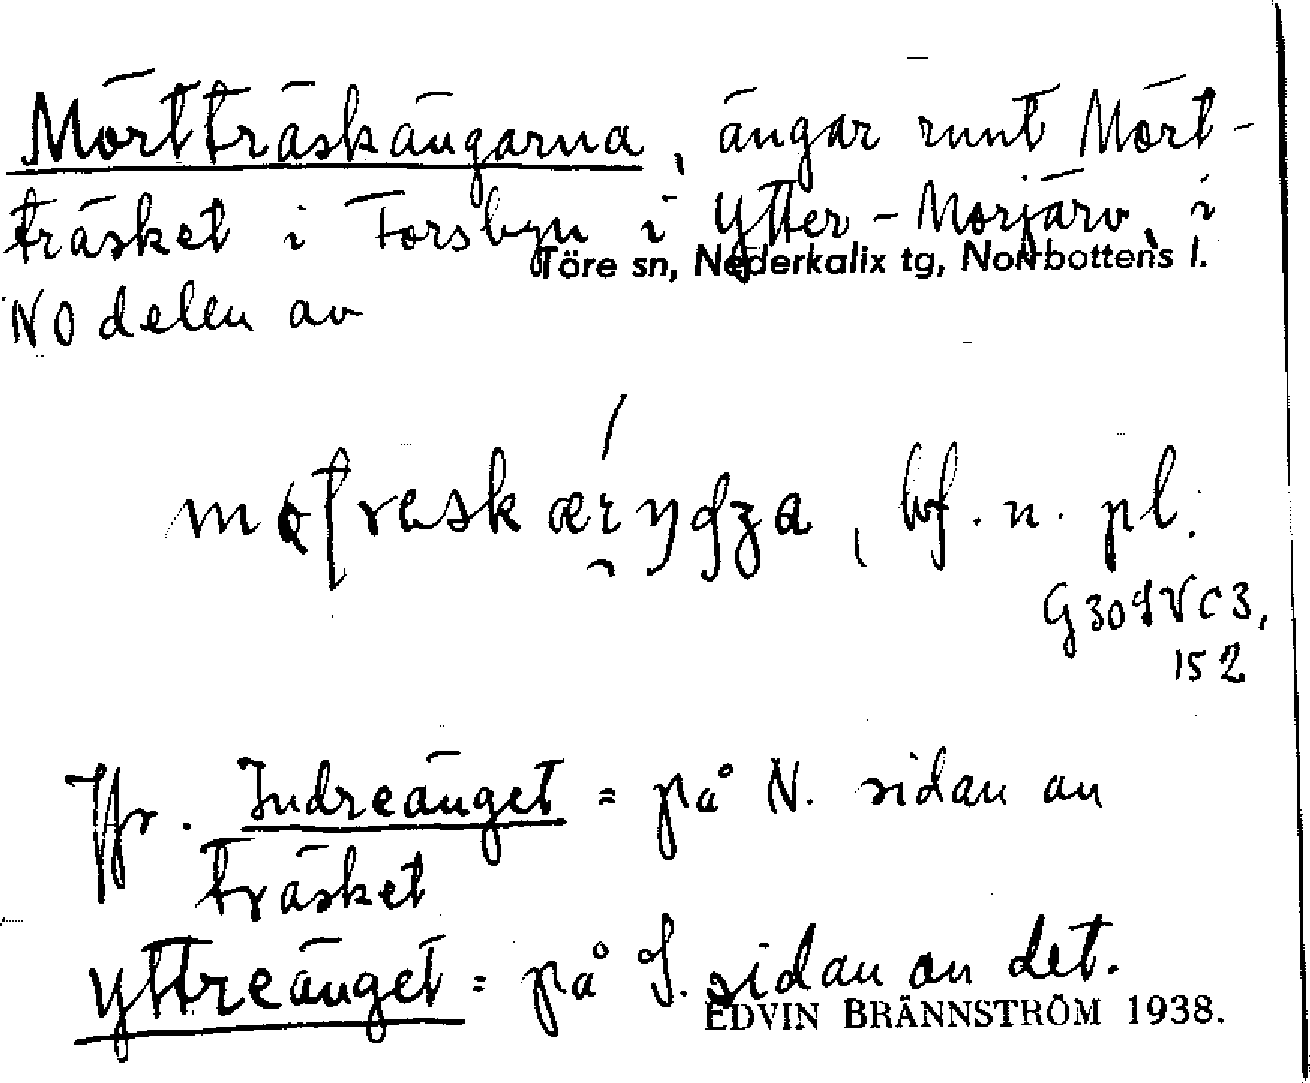 Mörtträskängarna, ängar runt Mört-
träsket i Forsbyn i Ytter-Morjärv, i
Töre sn, Nederkalix tg, Norrbottens l.
NO delen av
bf. n. pl.
152
Jfr. Indreänget = på N. sidan av
träsket
Yttreänget = på S. sidan av det.
EDVIN BRÄNNSTRÖM 1938.